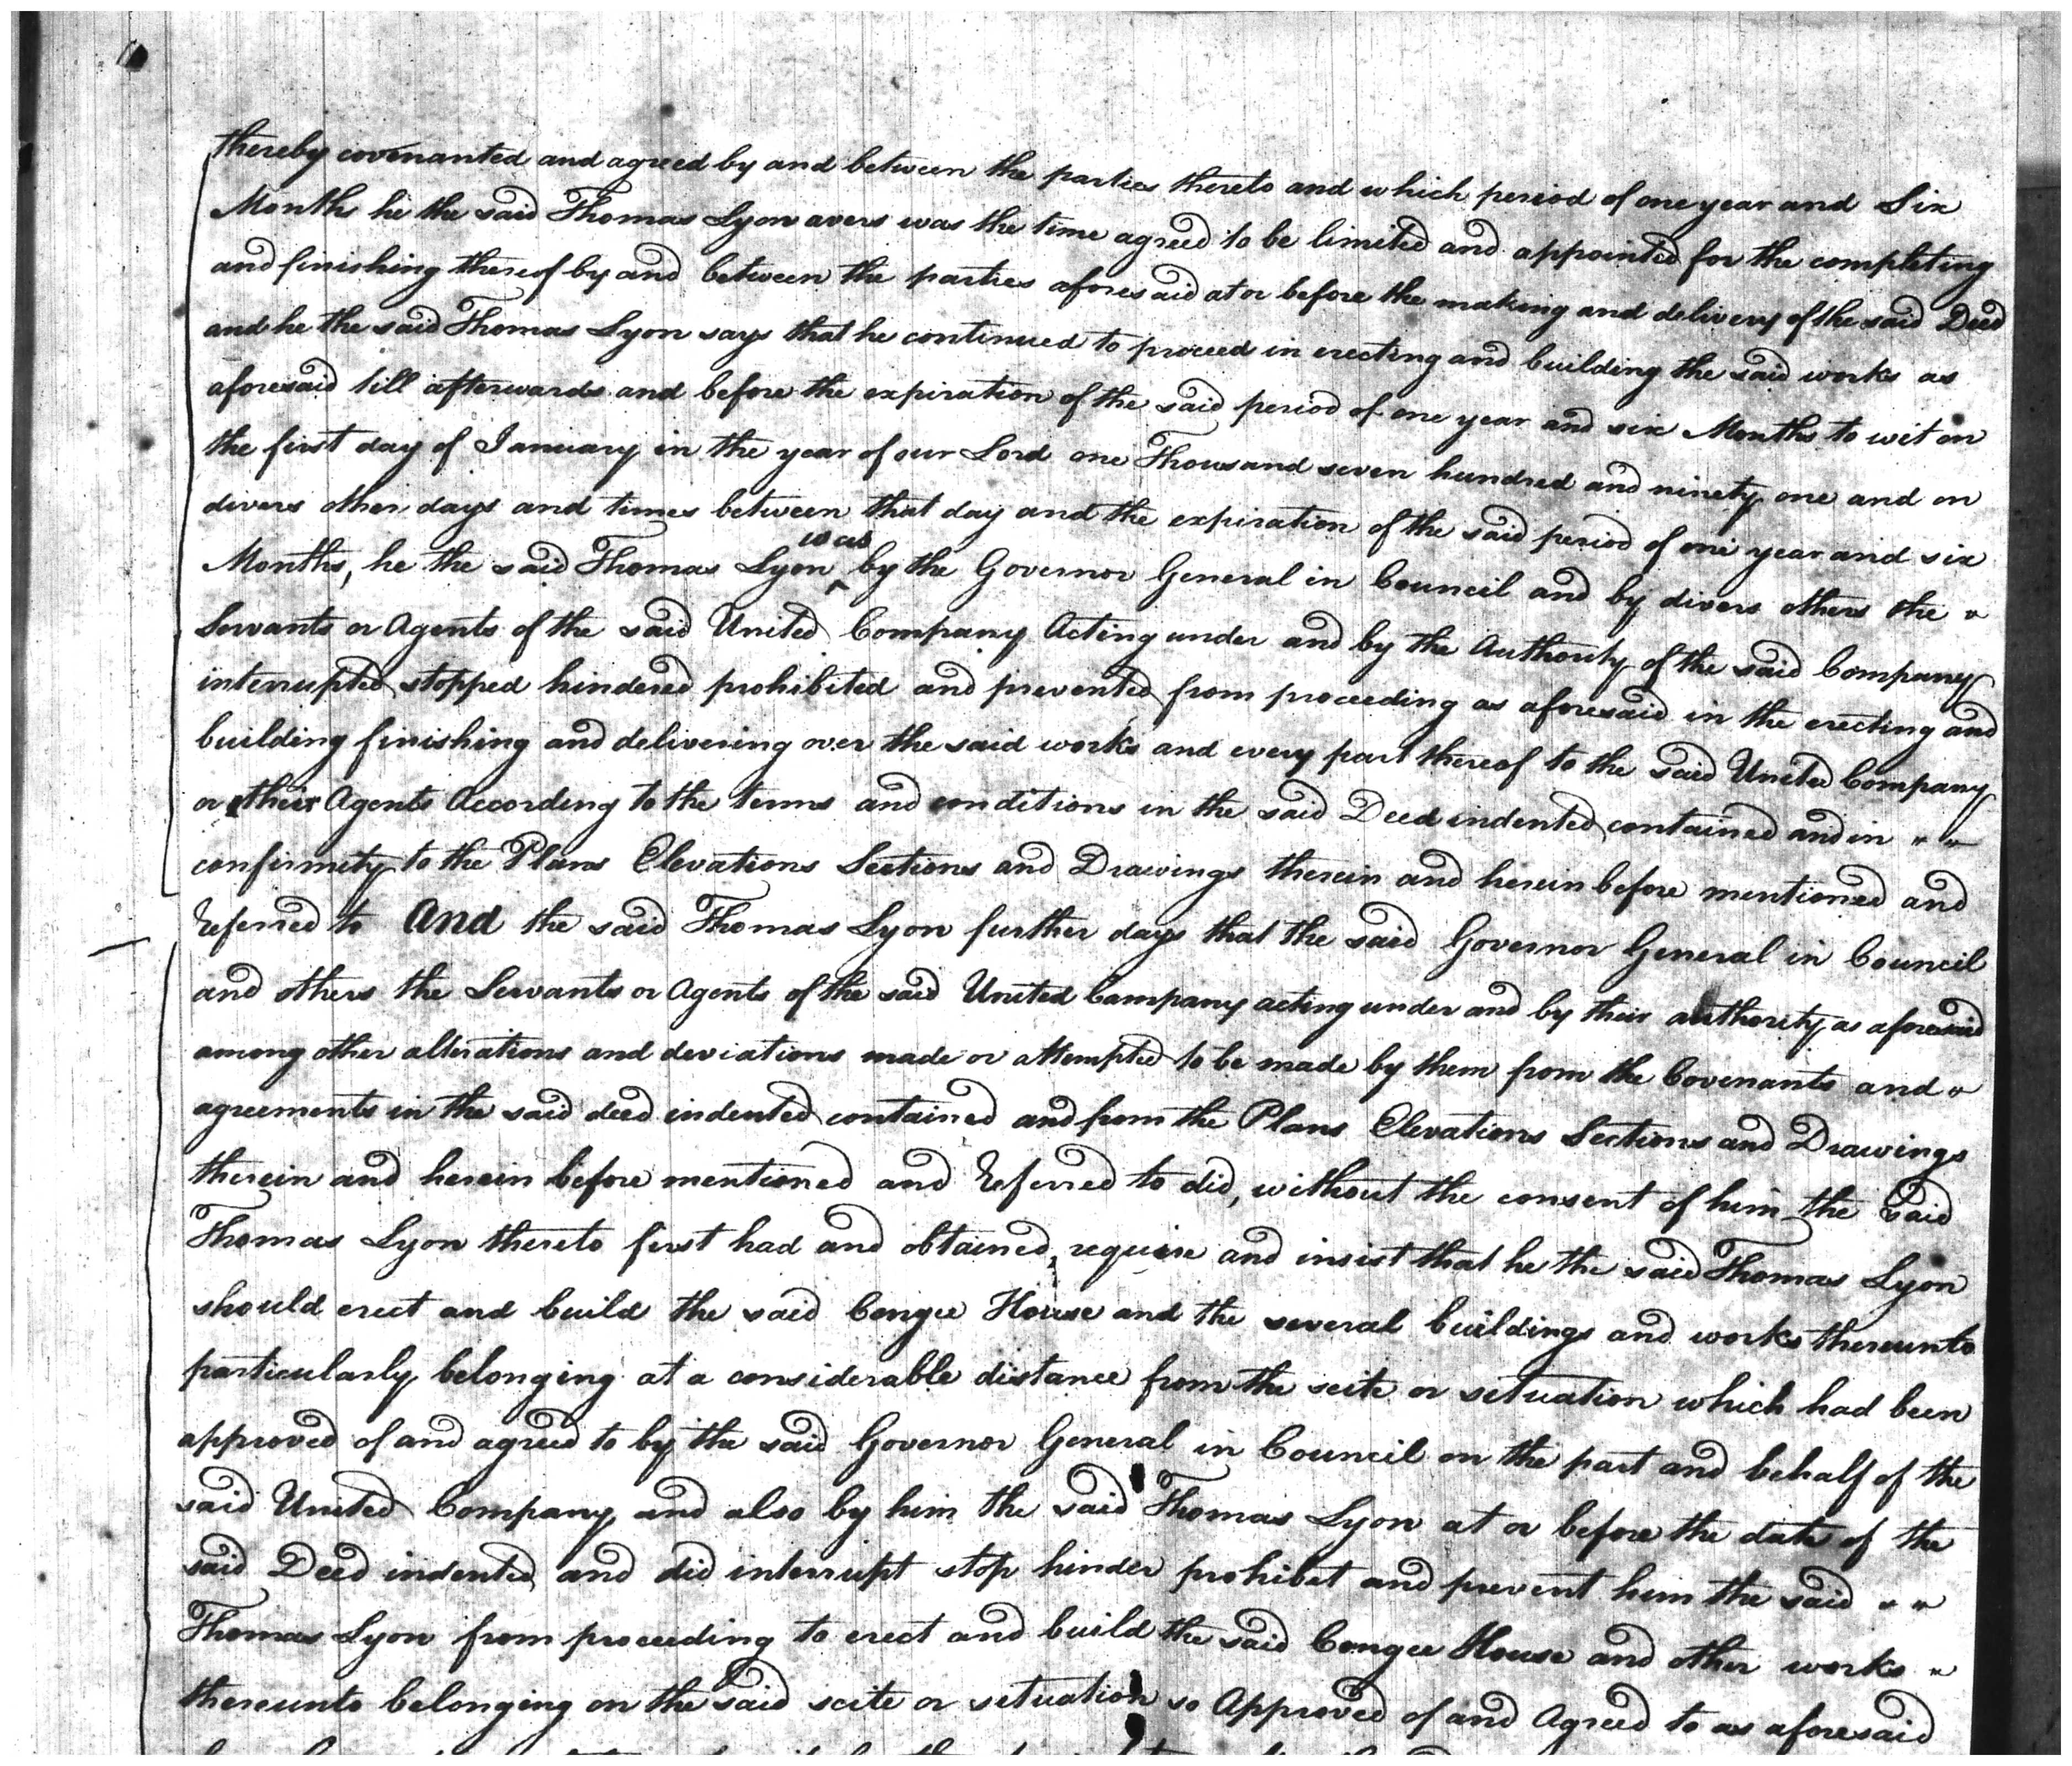 thereby covenanted and agreed by and between the parties thereto and which period of one year and Six
Months he the said Thomas Lyon avers was the time agreed to be limited and appointed for the completing
and finishing thereof by and between the parties aforesaid at or before the making and delivery of the said Deed
and he the said Thomas Lyon says that he continued to proceed in erecting and building the said works as
aforesaid till afterwards and before the expiration of the said period of one year and six Months to wit on
the first day of January in the year of our Lord one Thousand seven hundred and ninety one and on
divers other days and times between that day and the expiration of the said period of one year and six
Months, he the said Thomas Lyon was by the Governor General in Council and by divers others the "
Servants or Agents of the said United Company Acting under and by the Authority of the said Company
interrupted stopped hindered prohibited and prevented from proceeding as aforesaid in the erecting and
building finishing and delivering over the said works and every part thereof to the said United Company
or their Agents According to the terms and conditions in the said Deed indented contained and in " "
confirmity to the Plans Elevations Sections and Drawings therein and herein before mentioned and
Referred to And the said Thomas Lyon further days that the said Governor General in Council
and others the Servants or Agents of the said United Company acting under and by their authority as aforesaid
among other alterations and deviations made or attempted to be made by them from the Covenants and "
agreements in the said deed indented contained and from the Plans Elevations Sections and Drawings
therein and herein before mentioned and Referred to did, without the consent of him the said
Thomas Lyon thereto first had and obtained, require and insist that he the said Thomas Lyon
should erect and build the said Congee House and the several buildings and works thereunto
particularly belonging at a considerable distance from the scite or situation which had been
approved of and agreed to by the said Governor General in Council on the part and behalf of the
said United Company and also by him the said Thomas Lyon at or before the date of the
said Deed indented and did interrupt stop hinder prohibit and prevent him the said " "
Thomas Lyon from proceeding to erect and build the said Congee House and other works "
thereunto belonging on the said scite or situation so Approved of and Agreed to as aforesaid